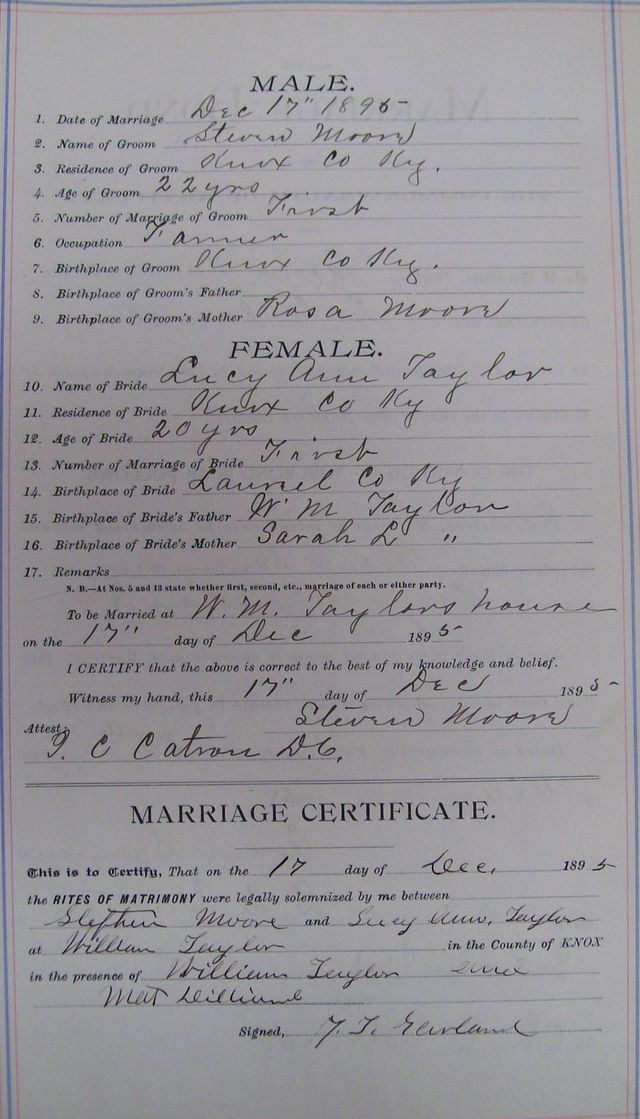 MALE.
1. Date of Marriage Dec 17" 1895
2. Name of Groom Steven Moore
3. Residence of Groom Knox Co Ky.
4. Age of Groom 22 yrs
5. Number of Marriage of Groom First
6. Occupation Farmer
7. Birthplace of Groom Knox Co Ky.
8. Birthplace of Groom's Father
9. Birthplace of Groom's Mother Rosa Moore
FEMALE.
10. Name of Bride Lucy Ann Taylor
11. Residence of Bride Knox Co Ky
12. Age of Bride 20 yrs
13. Number of Marriage of Bride First
14. Birthplace of Bride Laurel Co Ky
15. Birthplace of Bride's Father W. M Taylor
16. Birthplace of Bride's Mother Sarah L "
17. Remarks
N. B.—At Nos. 5 and 13 state whether first, second, etc., marriage of each or either party.
To be Married at W. M. Taylors house
on the 17" day of Dec 1895
I CERTIFY that the above is correct to the best of my knowledge and belief.
Witness my hand, this 17" day of Dec 1895
Steven Moore
Attest:
C Catron D.C.
MARRIAGE CERTIFICATE.
This is to Certify, That on the 17 day of Dec. 1895
the RITES OF MATRIMONY were legally solemnized by me between
Stephen Moore and Lucy Ann. Taylor
at William Taylor in the County of KNOX
in the presence of William Taylor and
Mat
Signed, Garland